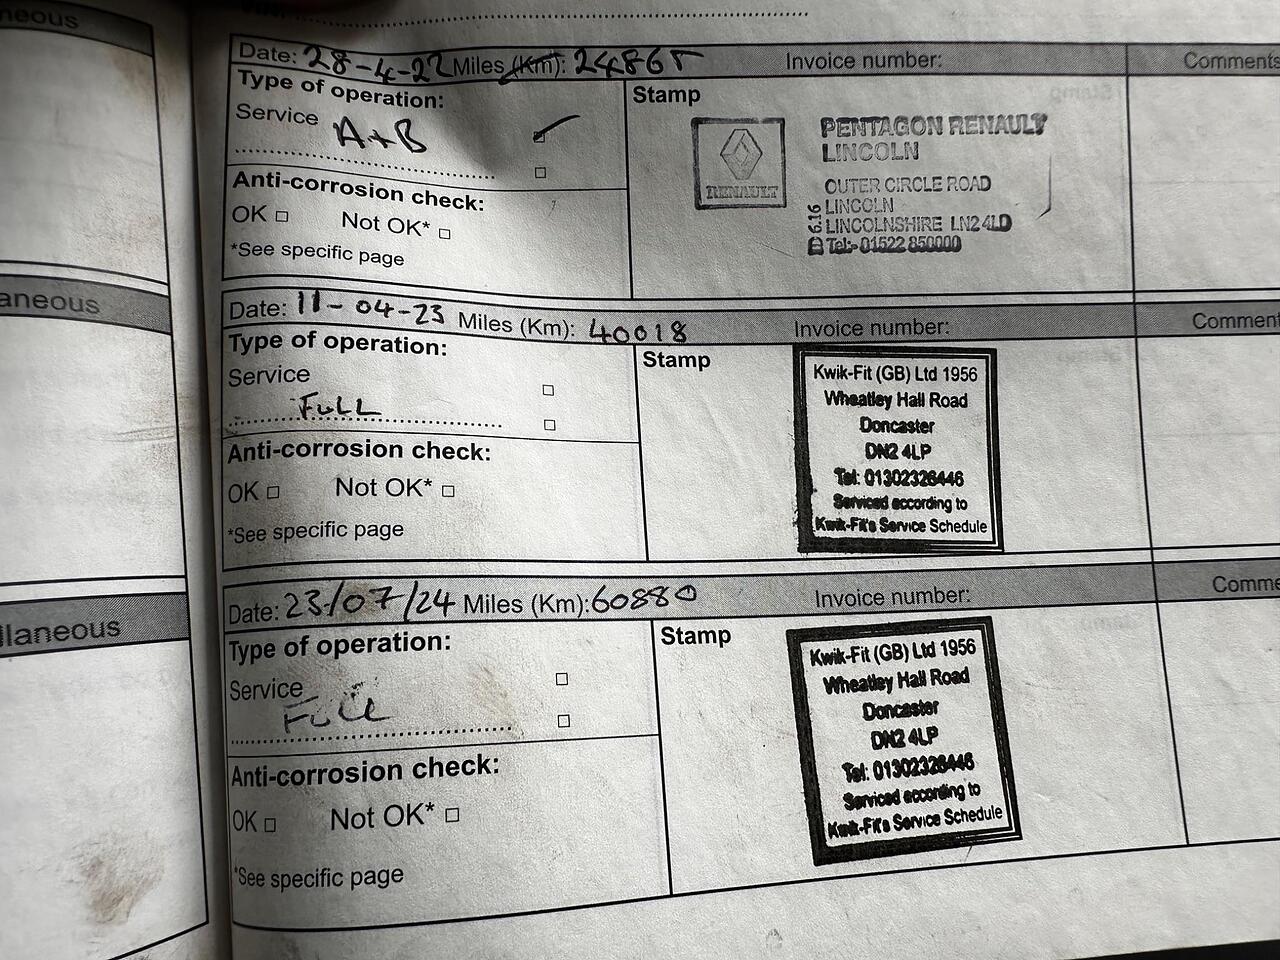 neous
Date: 28-4-22 Miles (Km): 24865 Invoice number: Comments
Type of operation: Stamp
Service A+B
PENTAGON RENAULT
LINCOLN
RENAULT
OUTER CIRCLE ROAD
LINCOLN
LINCOLNSHIRE LN2 4LD
Tel:- 01522 850000
6.16
Anti-corrosion check:
OK Not OK*
*See specific page
aneous
Date: 11-04-23 Miles (Km): 40018 Invoice number: Comment
Type of operation: Stamp
Service
FULL
Kwik-Fit (GB) Ltd 1956
Wheatley Hall Road
Doncaster
DN2 4LP
Tel: 01302326446
Serviced according to
Kwik-Fit's Service Schedule
Anti-corrosion check:
OK Not OK*
*See specific page
llaneous
Date: 23/07/24 Miles (Km): 60880 Invoice number: Comme
Type of operation: Stamp
Service
FULL
Kwik-Fit (GB) Ltd 1956
Wheatley Hall Road
Doncaster
DN2 4LP
Tel: 01302326446
Serviced according to
Kwik-Fit's Service Schedule
Anti-corrosion check:
OK Not OK*
*See specific page